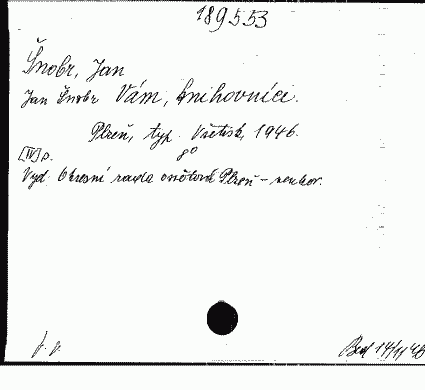 189553
Šnobr, Jan
Jan Šnobr Vám, knihovníci.
Plzeň, typ. Všetisk, 1946.
[IV] p. 8°
Vyd. Okresní rada osvětová Plzeň - venkov.
14/11/46